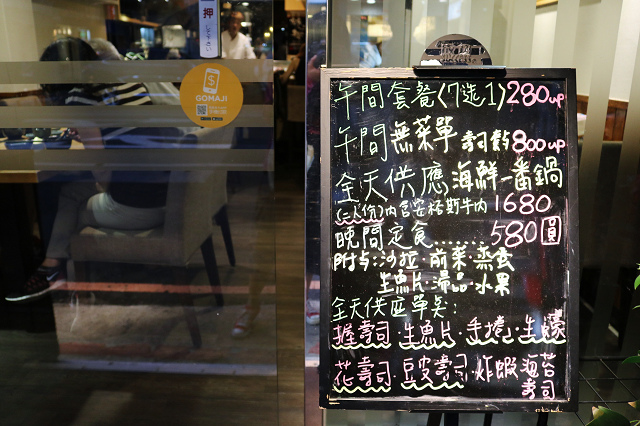 押
GOMAJI
午間套餐(7選1)280up
午間無菜單 壽司套800up
全天供應海鮮一番鍋
(二人份)內含安格斯牛肉 1680
晚間定食......580圓
附与:沙拉·前菜·蒸蛋
生魚片·湯品·水果
全天供应單点:
握壽司·生魚片·手捲·生蠔
花壽司·豆皮壽司·炸蝦海苔
壽司